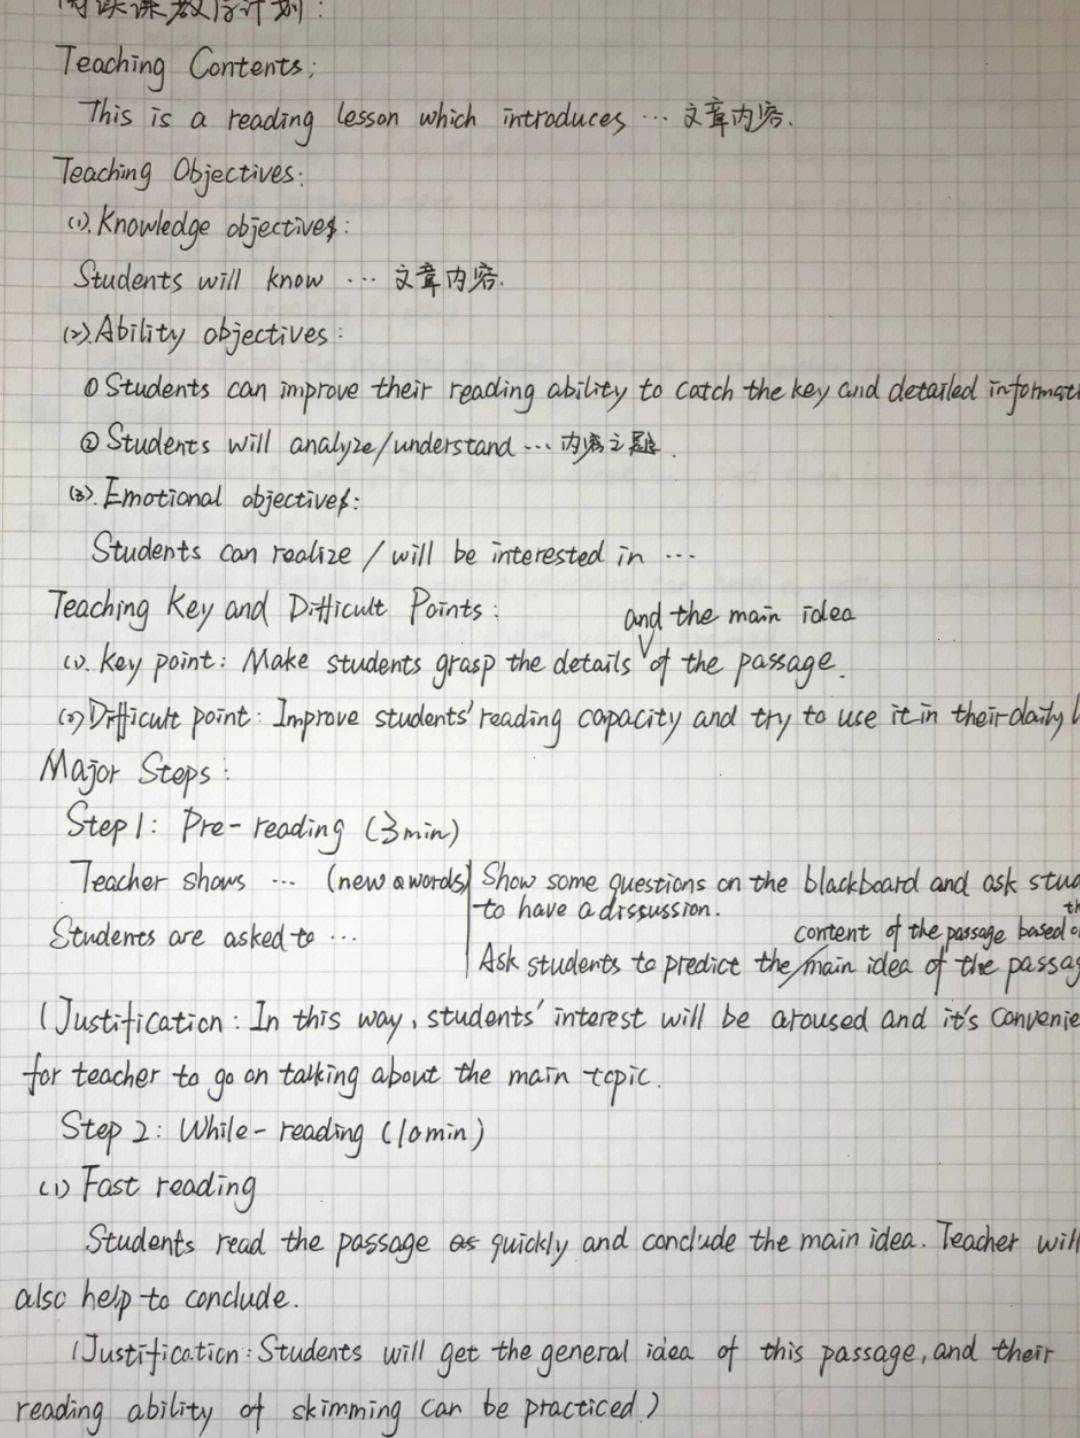 阅读课教学计划:
Teaching Contents:
This is a reading lesson which introduces ... 文章内容.
Teaching Objectives:
(1). Knowledge objectives:
Students will know ... 文章内容.
(2). Ability objectives:
① Students can improve their reading ability to catch the key and detailed informati
② Students will analyze/understand ... 内容主题.
(3). Emotional objectives:
Students can realize / will be interested in ...
Teaching Key and Difficult Points:
and the main idea
(1). Key point: Make students grasp the details of the passage.
(2) Difficult point: Improve students' reading capacity and try to use it in their daily l
Major Steps:
Step 1: Pre-reading (3min)
Teacher shows ... (new words) Show some questions on the blackboard and ask stud
to have a disscussion.
th
Students are asked to ...
content of the passage based o
Ask students to predict the main idea of the passag
(Justification: In this way, students' interest will be aroused and it's convenie
for teacher to go on talking about the main topic.
Step 2: While-reading (10min)
(1) Fast reading
Students read the passage quickly and conclude the main idea. Teacher will
also help to conclude.
(Justification: Students will get the general idea of this passage, and their
reading ability of skimming can be practiced.)